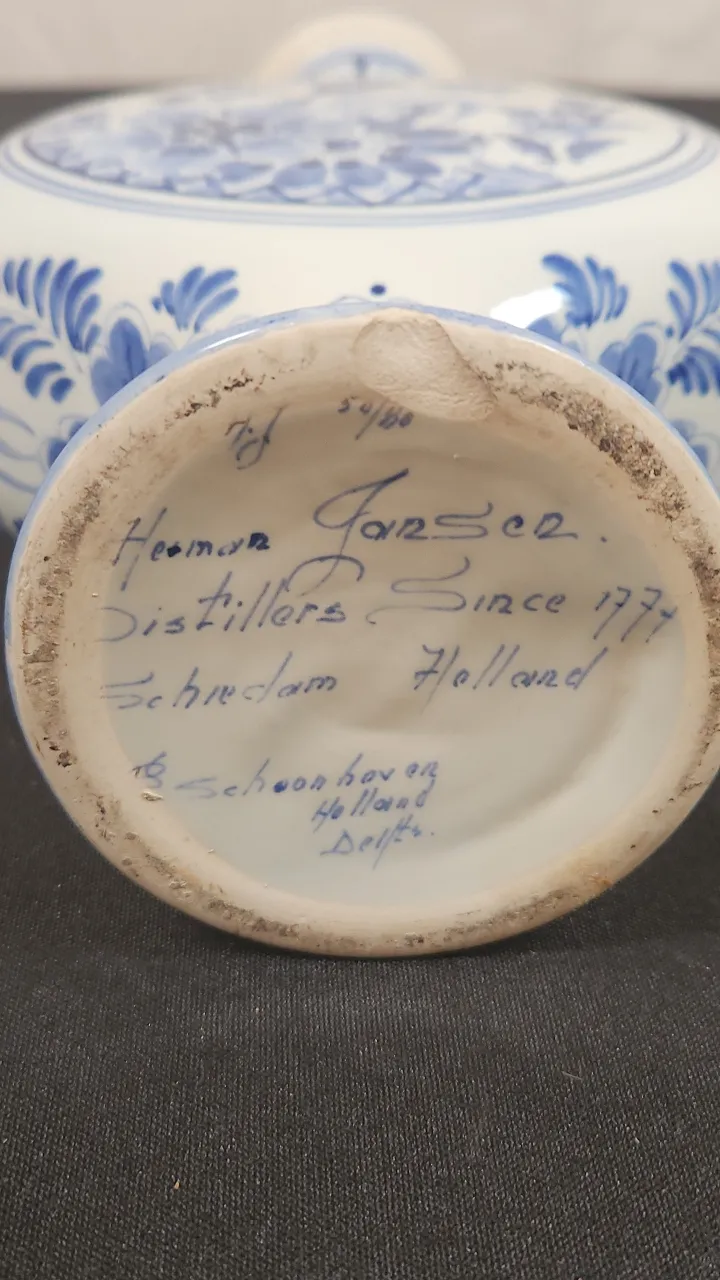 50/80
Herman Jansen.
Distillers Since 1777
Schiedam Holland
Schoonhoven
Holland
Delfts.